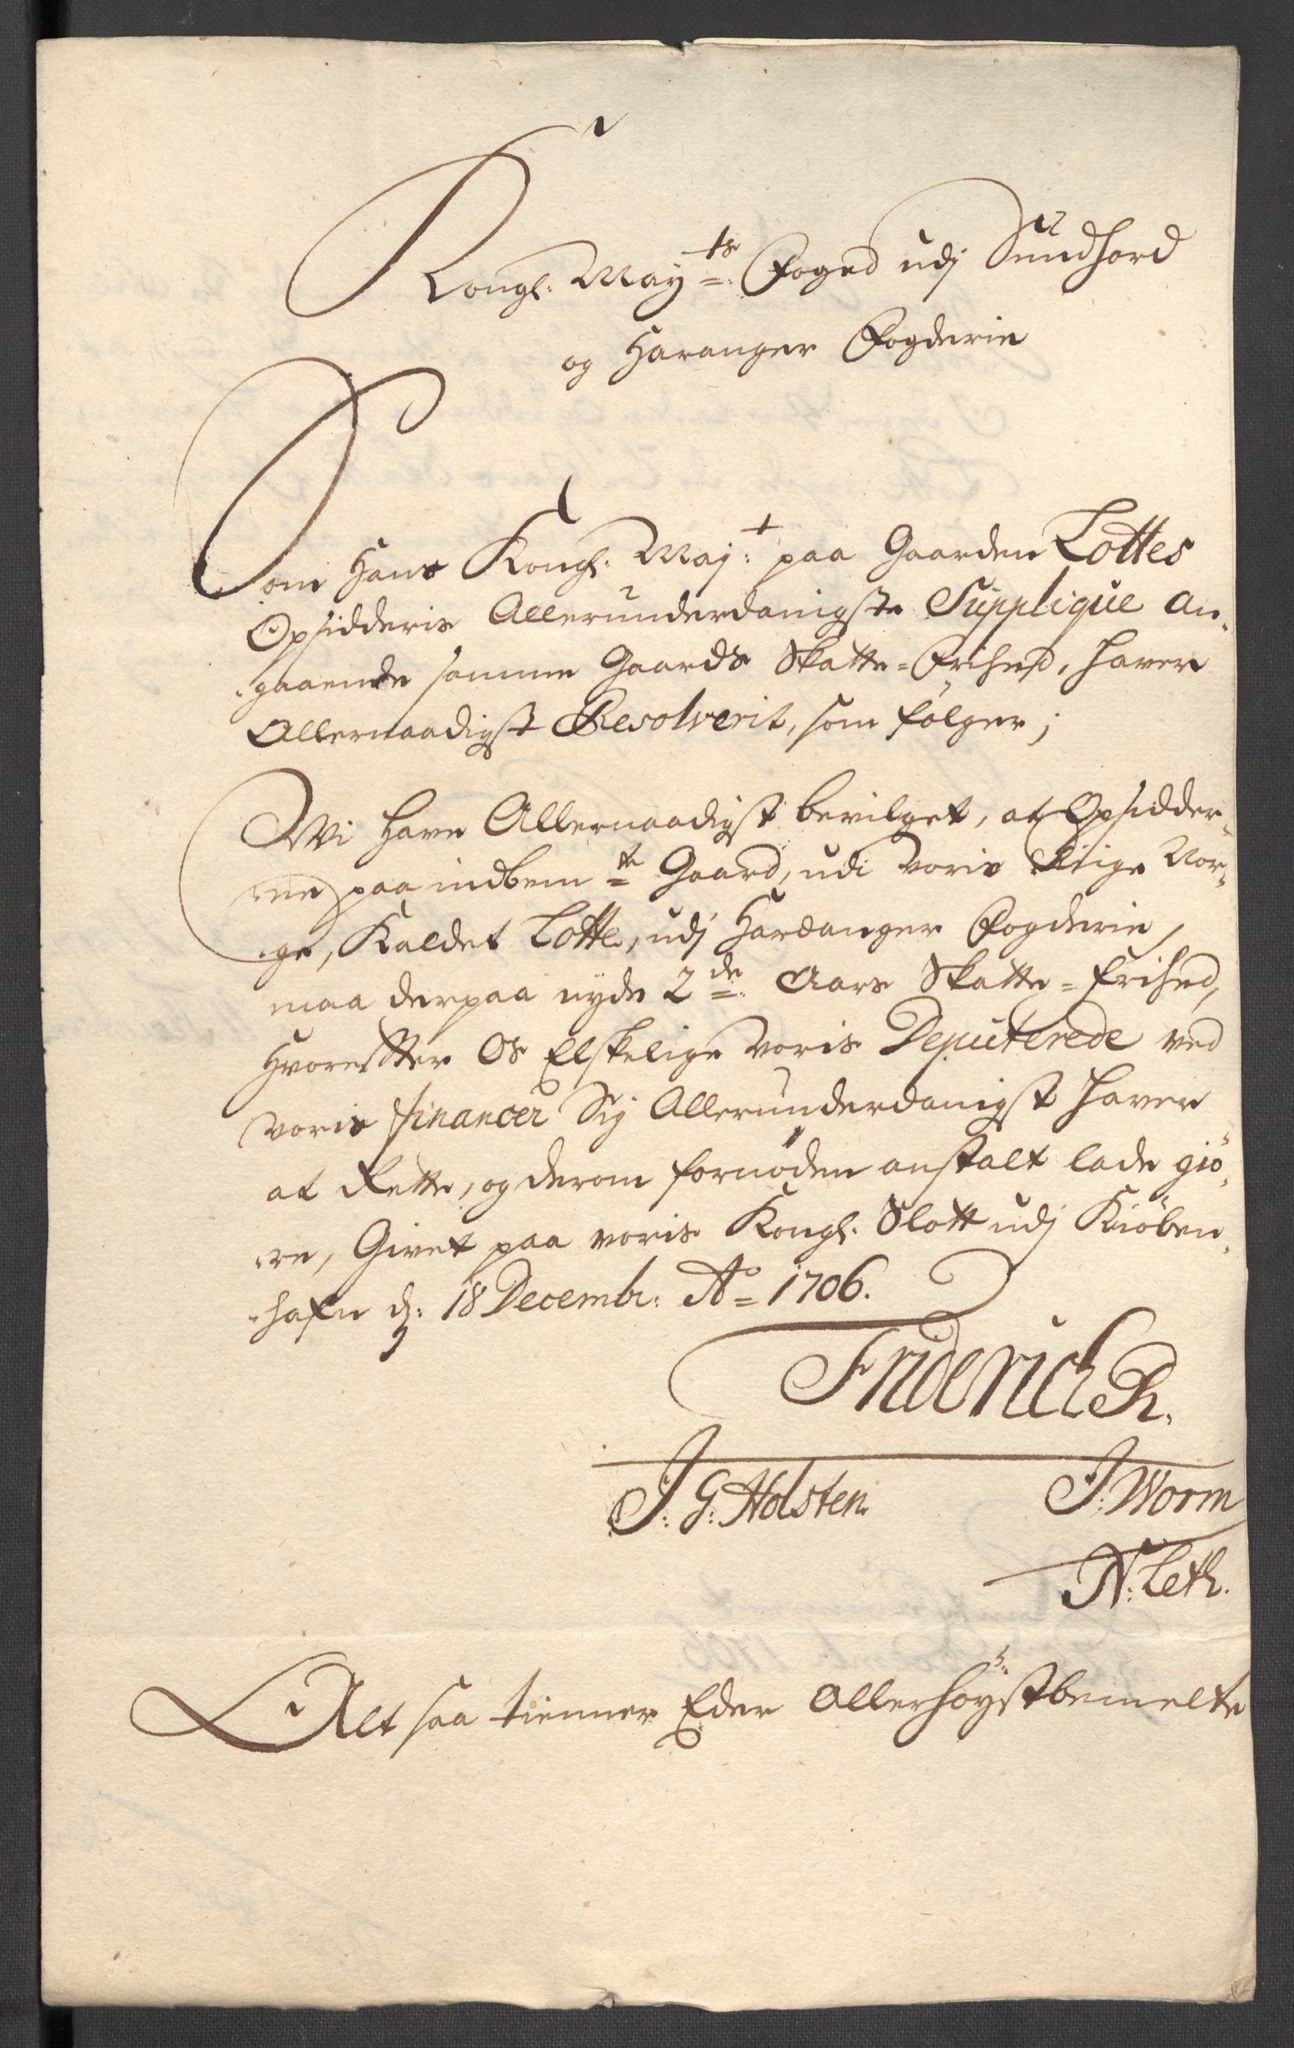 Kongl: May:ts Foged udj Sundhord
og Haranger Fogderie
Som Hans Kongl: Maj:t paa Gaarden Lottes
Opsidderis Allerunderdanigste Supplique an„
„gaaende samme Gaards Skatte=Frihed, haver
Allernaadigst Resolverit, som følger;
Wi have Allernaadigst bevilget, at Opsidder„
„ne paa indbem:te Gaard, udi Voris Riige Nor„
„ge, Kaldet Lotte, udj Hardanger Fogderie,
maa derpaa nyde 2de Aars Skatte=Frihed,
Hvorefter Os Elskelige Voris Deputerede ved
Voris financer Sig Allerunderdanigst haver
at Rette, og derom fornøden anstalt lade giö„
„re, Givet paa voris Kongl: Slott udj Kiöben„
„hafn d: 18 Decembr: Ao 1706.
Friderich R.
J: G: Holsten J: Worm
N: Leth.
Alt saa tienner Eder Allerhöystbemelte